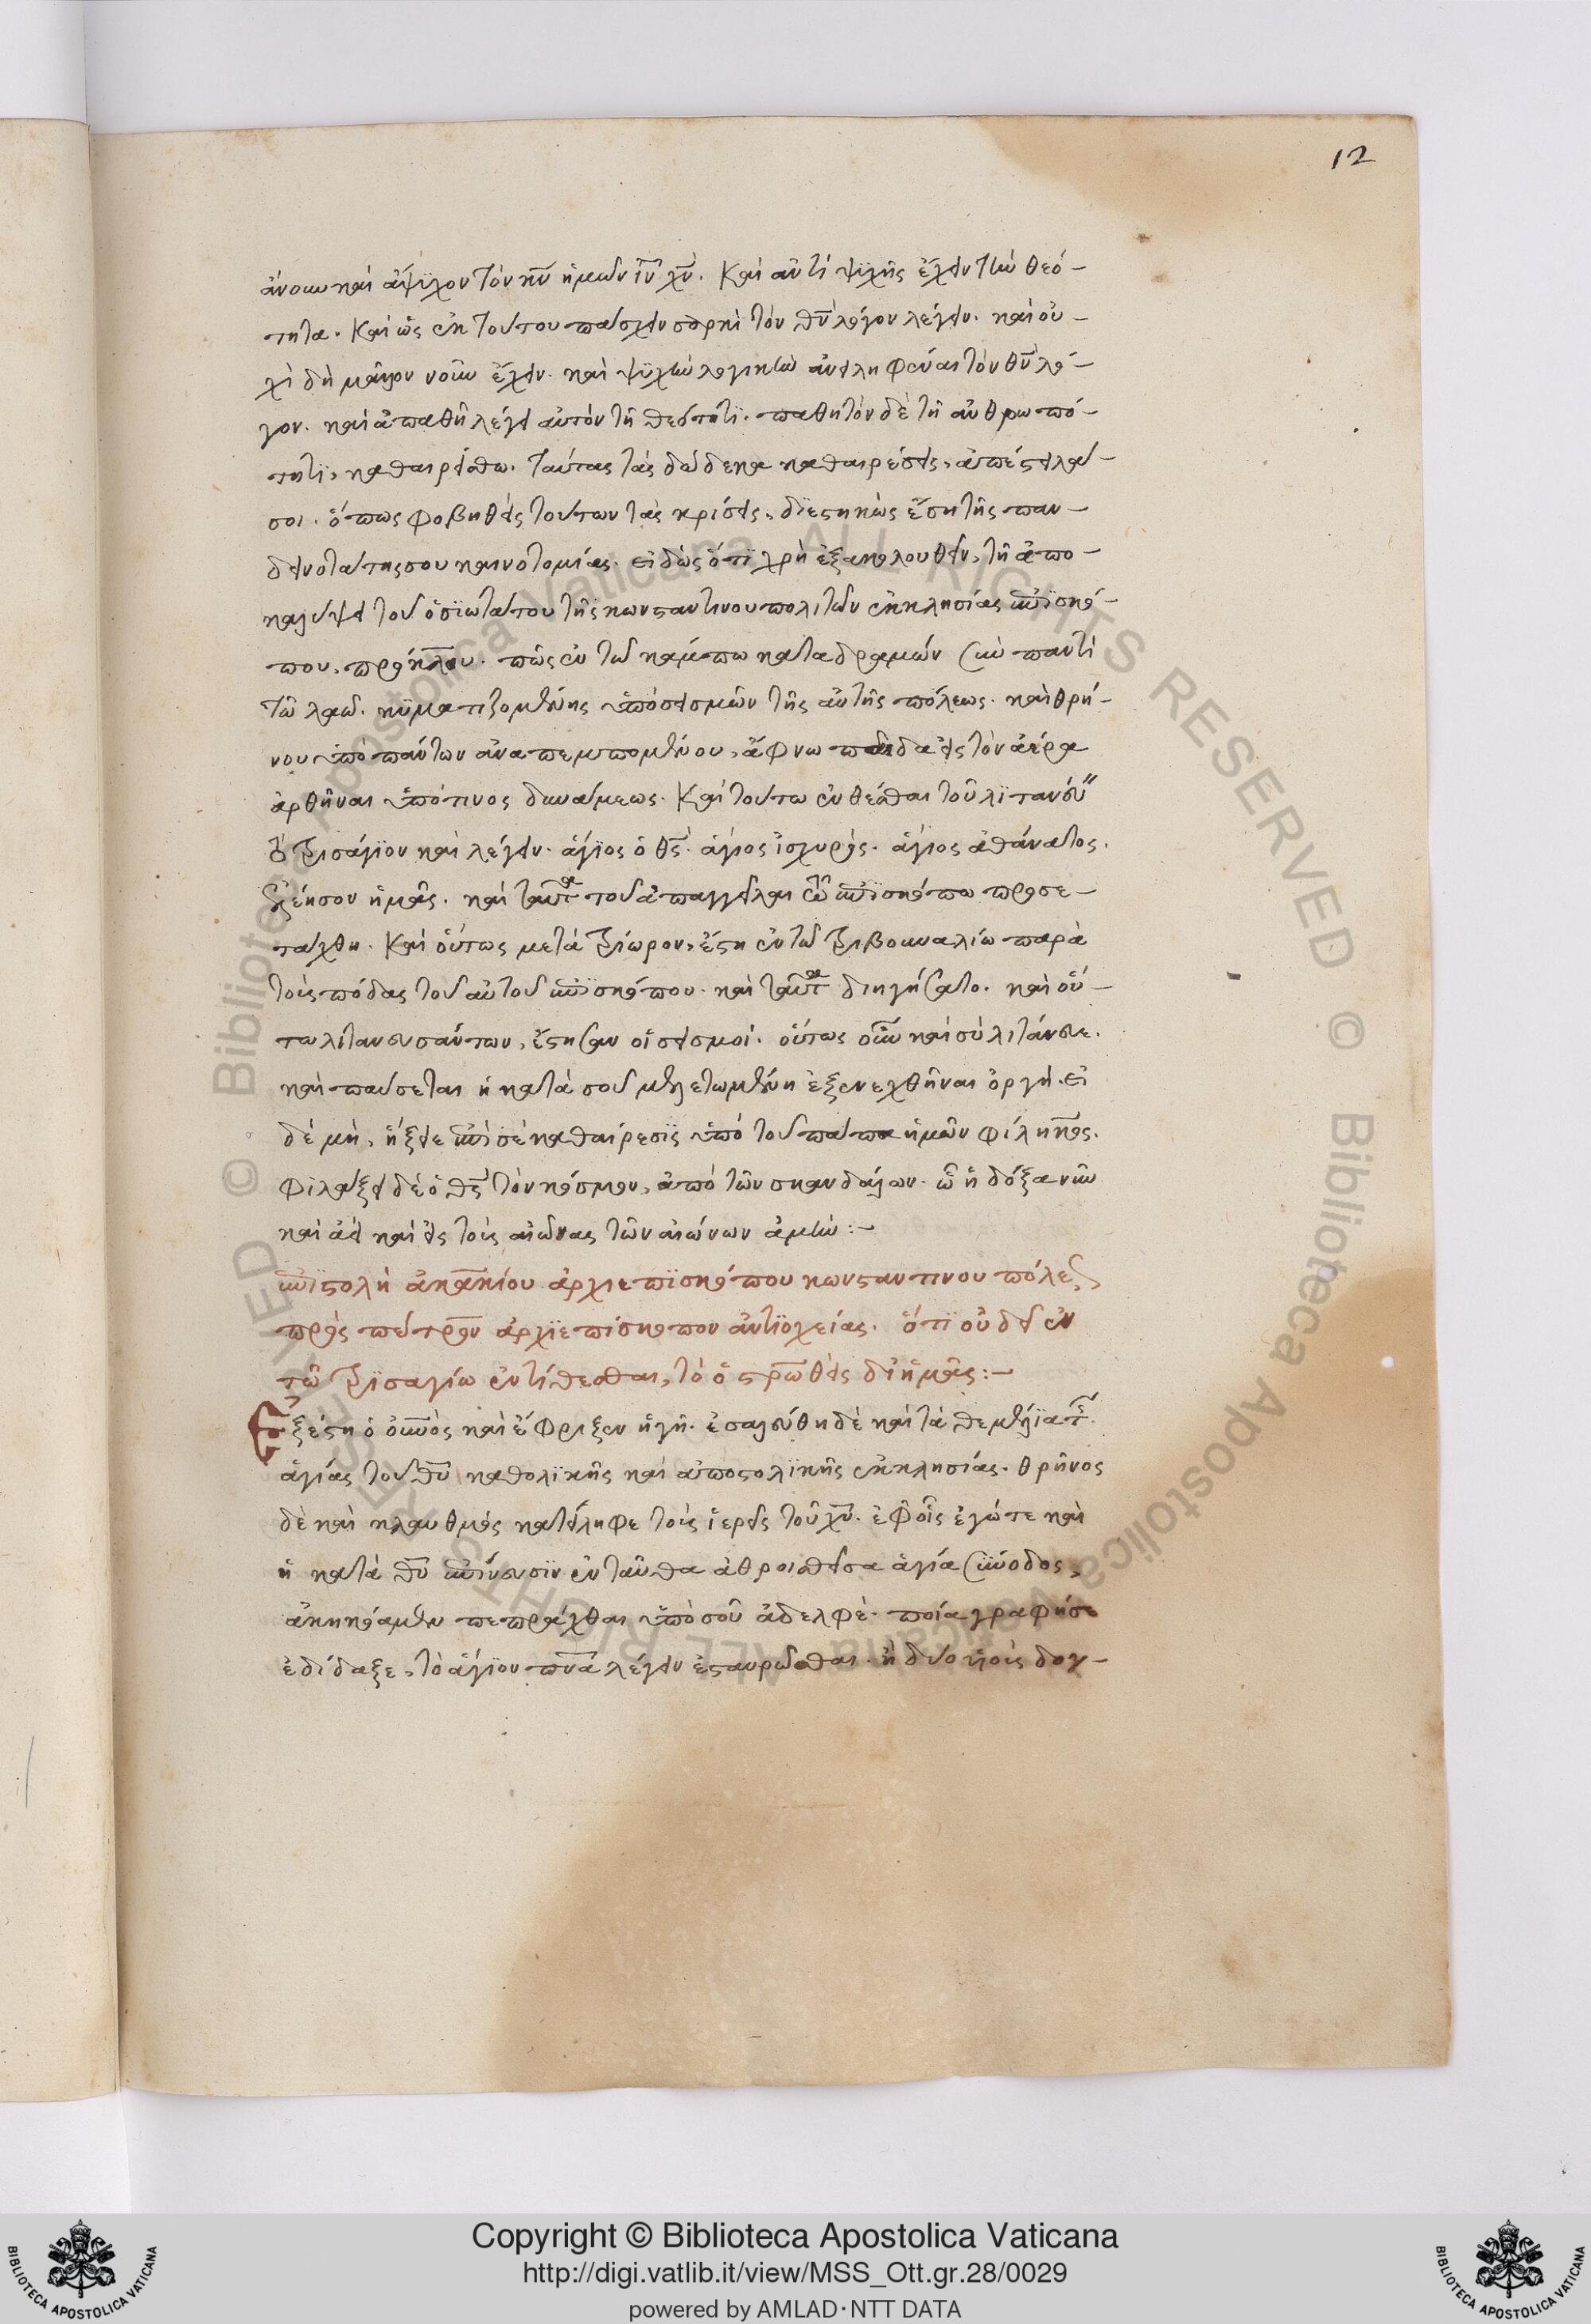 12
ἄνουν καὶ ἄψυχον τὸν κν ἡμῶν ιν χν. Καὶ ἀντὶ ψυχῆς ἔχειν τὴν θεό-
τητα. Καὶ ὡς ἐκ τούτου πάσχειν σαρκὶ τὸν θυ λόγον λέγειν. καὶ οὐ-
χὶ δὴ μᾶλλον νοῦν ἔχειν. καὶ ψυχὴν λογικὴν ἀνειληφέναι τὸν θυ λό-
γον. καὶ ἀπαθῆ λέγει αὐτὸν τῇ θεότητι. παθητὸν δὲ τῇ ἀνθρωπό-
τητι, καθαιρείσθω. ταύτας τὰς δώδεκα καθαιρέσεις, ἀπέστειλά
σοι. ὅπως φοβηθεὶς τούτων τὰς κρίσεις, διεστηκὼς ἔσῃ τῆς παν-
δεινοτάτης σου καινοτομίας. εἰδὼς ὅτι χρὴ ἐξακολουθεῖν, τῇ ἀπο-
καλύψει τοῦ ὁσιωτάτου τῆς κωνσταντινουπολιτῶν ἐκκλησίας ἐπισκό-
που, πρόκλου. πῶς ἐν τῷ κάμπω καταδραμὼν σὺν παντὶ
τῷ λαῷ. κυματιζομένης ὑπὸ σεισμῶν τῆς αὐτῆς πόλεως. καὶ θρή-
νου ὑπὸ πάντων ἀναπεμπομένου, ἄφνω παῖδα εἰς τὸν ἀέρα
ἀρθῆναι ὑπό τινος δυνάμεως. Καὶ τούτω ἐνθέσθαι τοῦ λιτανεύειν
τὸ τρισάγιον καὶ λέγειν. ἅγιος ὁ θς. ἅγιος ἰσχυρός. ἅγιος ἀθάνατος.
ἐλέησον ἡμᾶς. καὶ ταῦτα τοῦ ἀπαγγεῖλαι τῷ ἐπισκόπω προσε-
τάχθη. Καὶ οὕτως μετὰ τρίωρον, ἔστη ἐν τῷ τριβουναλίω παρὰ
τοὺς πόδας τοῦ αὐτοῦ ἐπισκόπου. καὶ ταῦτα διηγήσατο. καὶ οὕ-
τω λιτανευσάντων, ἔστησαν οἱ σεισμοί. οὕτως οὖν καὶ σὺ λιτάνευε.
καὶ παύσεται ἡ κατὰ σοῦ μελετωμένη ἐξενεχθῆναι ὀργή. εἰ
δὲ μή, ἥξειε ἐπὶ σὲ καθαίρεσις ὑπὸ τοῦ πάπα ἡμῶν φίληκος.
φυλάξει δὲ ὁ θς τὸν κόσμον, ἀπὸ τῶν σκανδάλων. ᾧ ἡ δόξα νῦν
καὶ ἀεὶ καὶ εἰς τοὺς αἰῶνας τῶν αἰώνων ἀμήν:-
ἐπιστολὴ ἀκακίου ἀρχιεπισκόπου κωνσταντινουπόλεως
πρὸς πέτρον ἀρχιεπίσκοπον ἀντιοχείας. ὅτι οὐ δεῖ ἐν
τῷ τρισαγίω ἐντίθεσθαι, τὸ ὁ στρωθεὶς δι' ἡμᾶς:-
Ἐξέστη ὁ οὐνὸς καὶ ἔφριξεν ἡ γῆ. ἐσαλεύθη δὲ καὶ τὰ θεμέλια τῆς
ἁγίας τοῦ θυ καθολικῆς καὶ ἀποστολικῆς ἐκκλησίας. θρῆνος
δὲ καὶ κλαυθμὸς κατείληφε τοὺς ἱερεῖς τοῦ χυ. ἐφ' οἷς ἐγώ τε καὶ
ἡ κατὰ θν ἐπίνευσιν ἐνταῦθα ἀθροισθεῖσα ἁγία σύνοδος,
ἀκηκόαμεν πεπράχθαι ὑπὸ σοῦ ἀδελφέ. ποία γραφή σε
ἐδίδαξε, τὸ ἅγιον πνα λέγειν ἐσταυρῶσθαι. ἢ δύο υἱοὺς δογ-
Copyright © Biblioteca Apostolica Vaticana
http://digi.vatlib.it/view/MSS_Ott.gr.28/0029
powered by AMLAD·NTT DATA